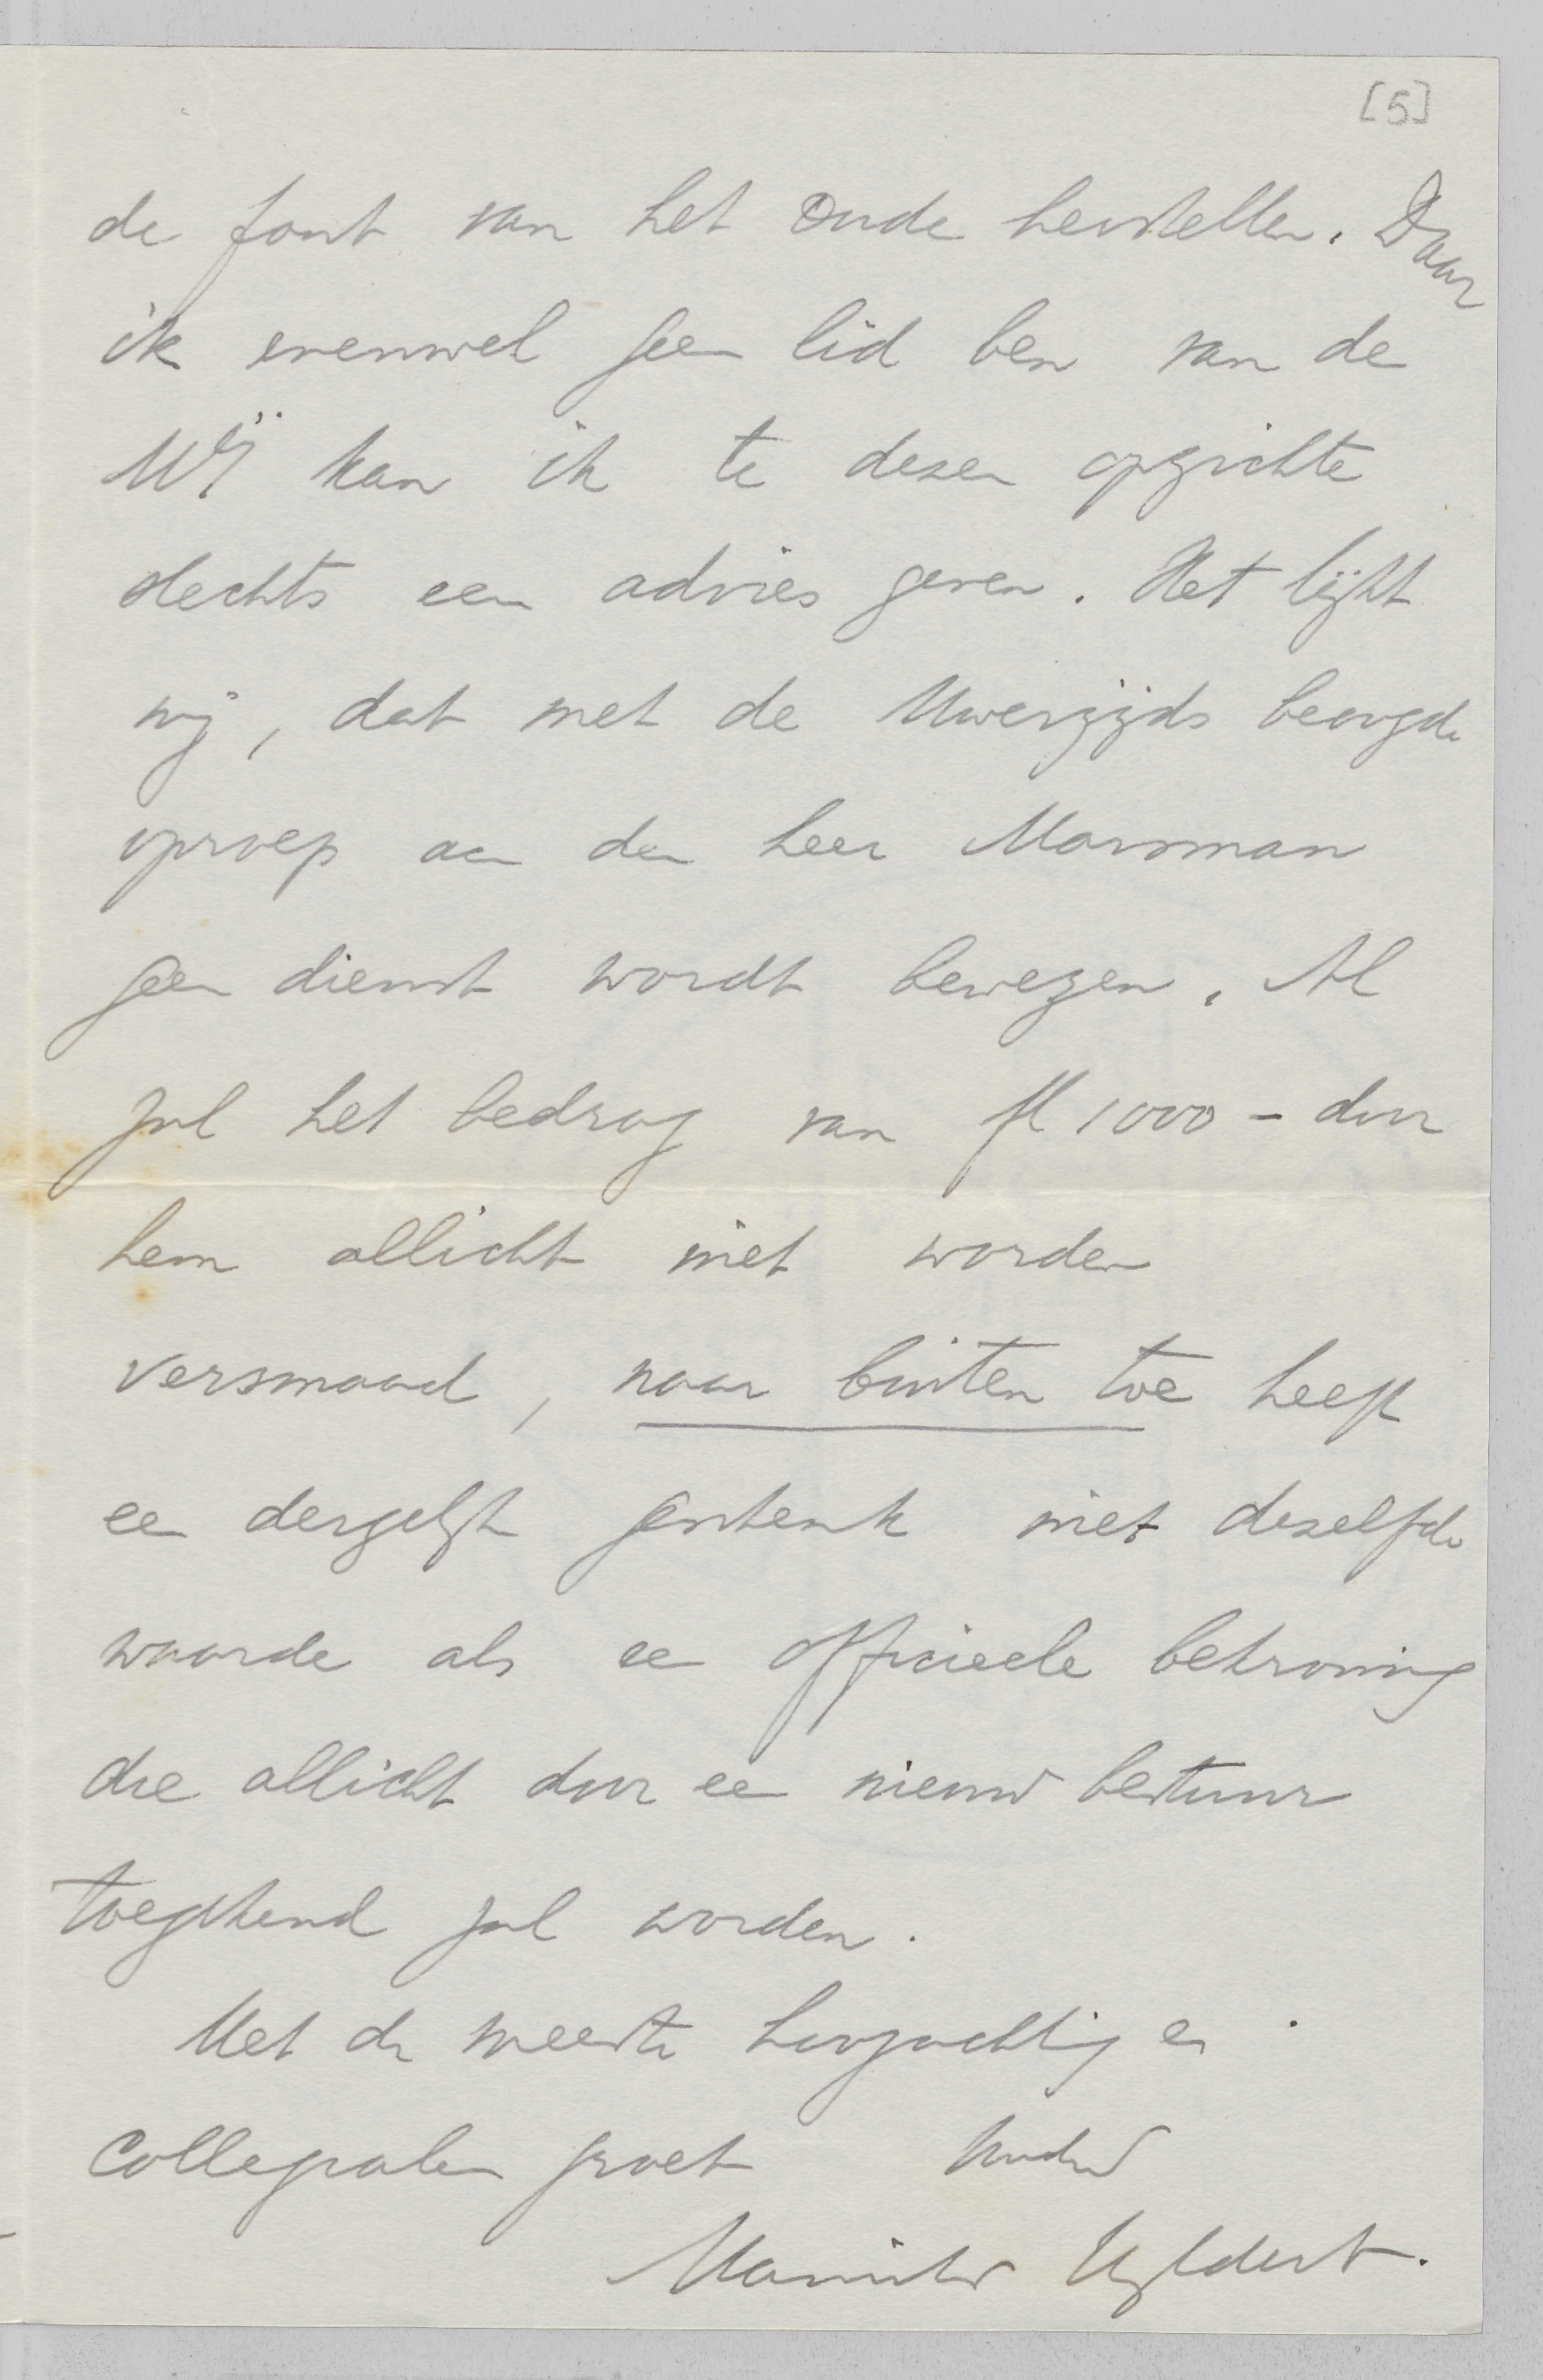 [5]
de fout van het oude herstellen. Daar
ik evenwel geen lid ben van de
Mij kan ik te dezen opzichte
slechts een advies geven. Het lijkt
mij, dat met de Uwerzijds beoogde
oproep aan den heer Marsman
geen dienst wordt bewezen. Al
zal het bedrag van fl 1000 - door
hem allicht niet worden
versmaad, naar buiten toe heeft
een dergelijk geschenk niet dezelfde
waarde als een officieele bekroning
die allicht door een nieuw bestuur
toegekend zal worden.
Met de meeste hoogachting en
collegialen groet
Maurits Uyldert.